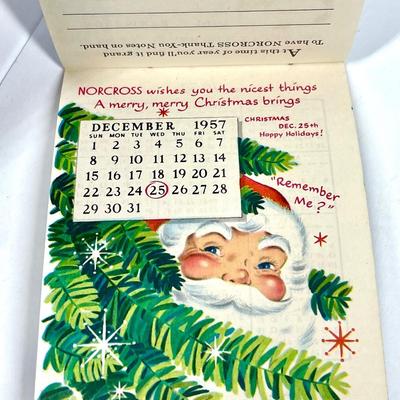 To have NORCROSS Thank-You Notes on hand.
At this time of year you'll find it grand
NORCROSS wishes you the nicest things
A merry, merry Christmas brings
DECEMBER 1957
SUN MON TUE WED THU FRI SAT
1 2 3 4 5 6 7
8 9 10 11 12 13 14
15 16 17 18 19 20 21
22 23 24 25 26 27 28
29 30 31
CHRISTMAS
DEC. 25th
Happy Holidays!
"Remember
Me?"